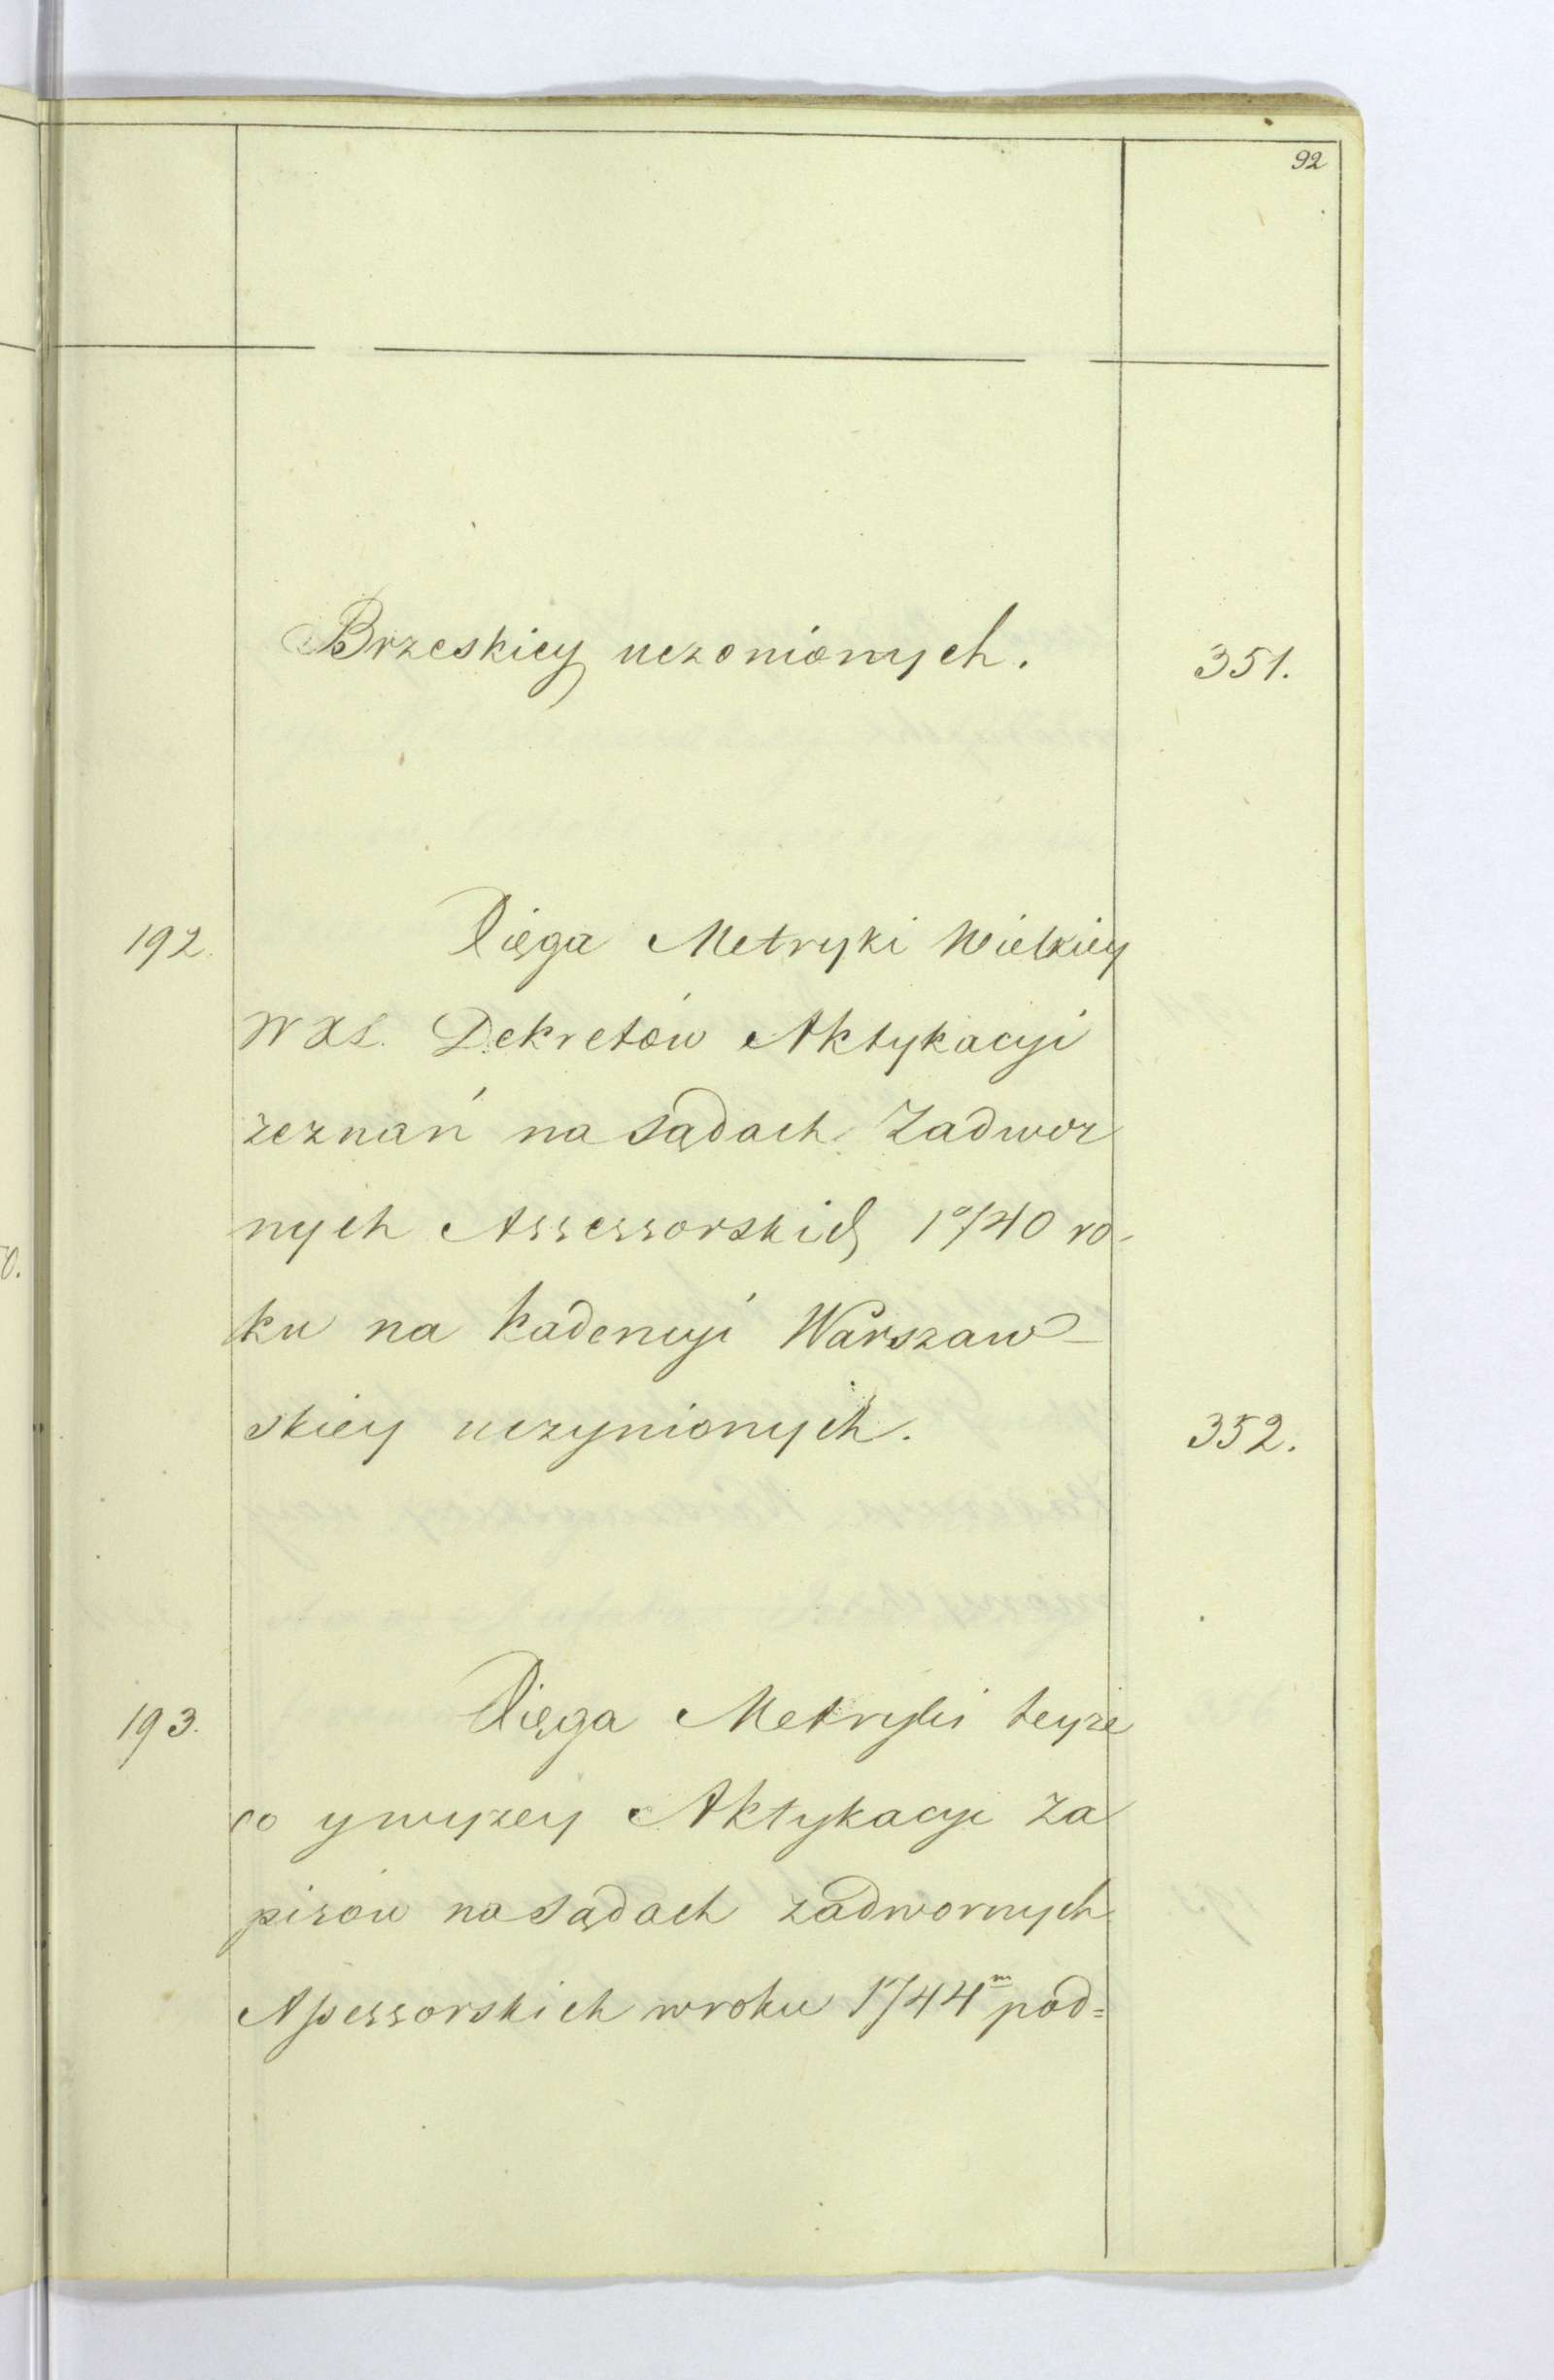 92
Brzeskiey uczonionych. 351.
192. Xięga Metryki Wielkiey
W XL. Dekretów Aktykacyi
zeznań na Sądach Zadwor
nych Assessorskich 1740 ro-
ku na kadencyi Warszaw-
skiey uczynionych. 352.
193. Xięga Metryki teyże
co y wyzey Aktykacyi Za
pisów na Sądach zadwornych
Assessorskich w roku 1744m pod=